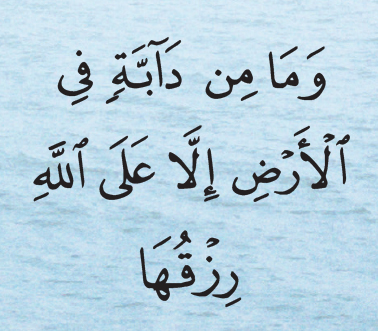 وَمَا مِن دَآبَّةٍ فِي
ٱلْأَرْضِ إِلَّا عَلَى ٱللَّهِ
رِزْقُهَا